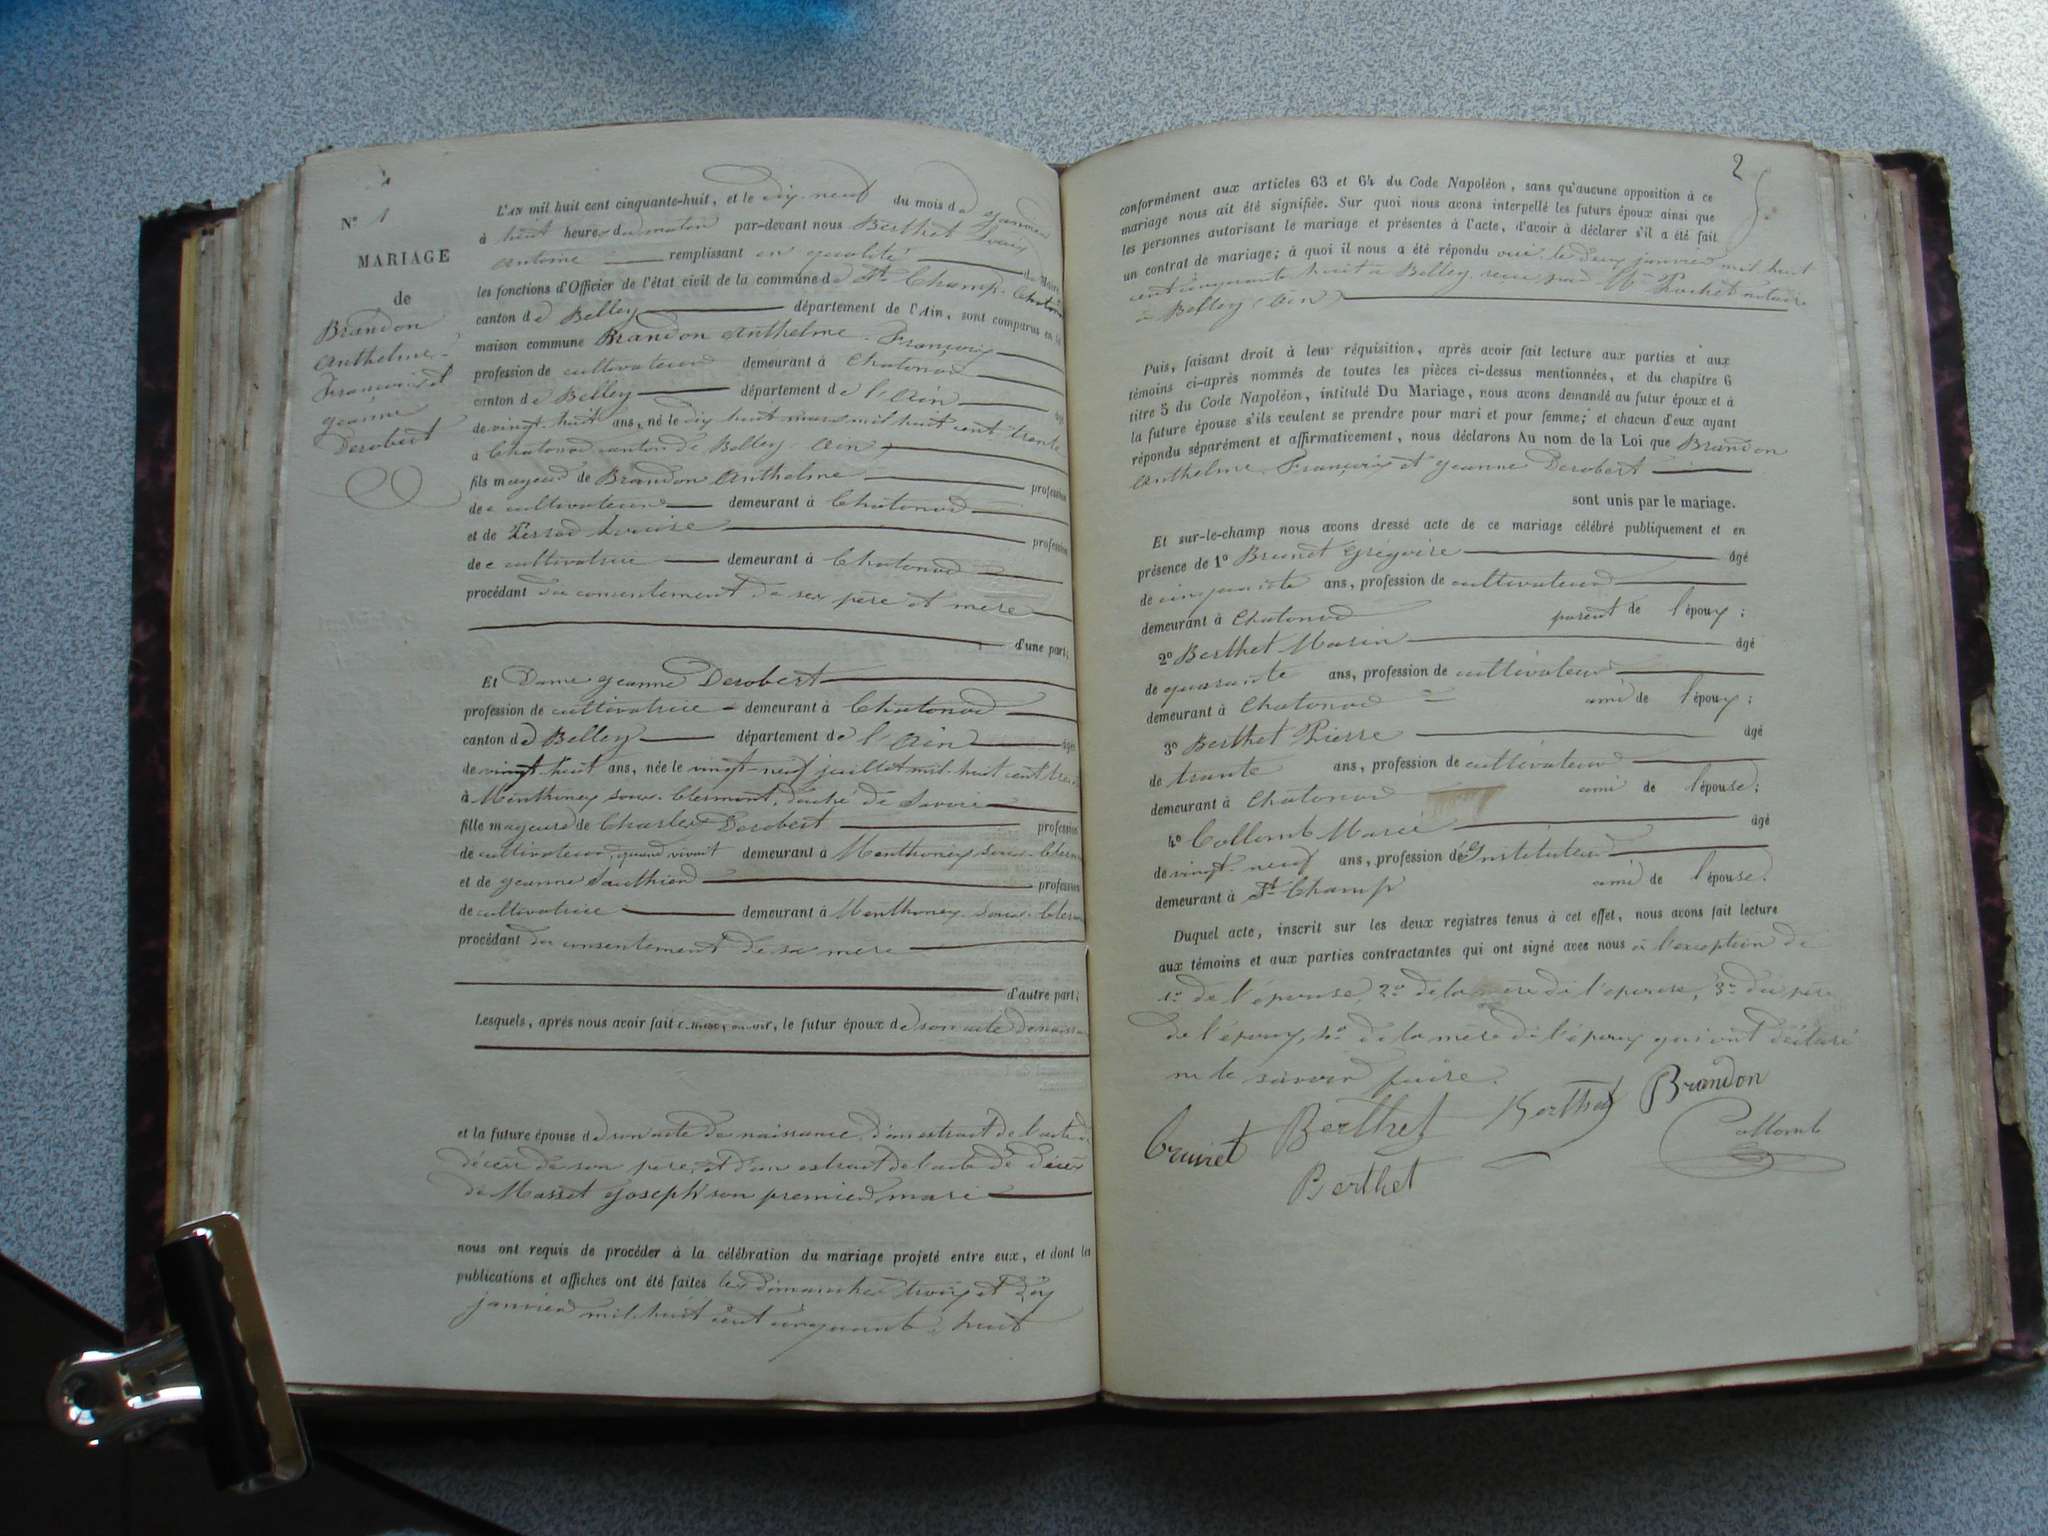 N° 1
MARIAGE
de
Brandon
Anthelme-
François et
Jeanne
Derobert
L'AN mil huit cent cinquante-huit, et le dix-neuf du mois de Janvier
à huit heures du matin par-devant nous Berthet Louis
Antoine remplissant en qualité de Maire
les fonctions d'Officier de l'état civil de la commune de St Champ-Chatonod
canton de Belley département de l'Ain, sont comparus en la
maison commune Brandon Anthelme-François
profession de cultivateur demeurant à Chatonod
canton de Belley département de l'Ain âgé
de vingt-huit ans, né le dix huit mars mil huit cent trente
à Chatonod canton de Belley Ain
fils majeur de Brandon Anthelme profession
de cultivateur demeurant à Chatonod
et de Louise profession
de cultivatrice demeurant à Chatonod
procédant du consentement de ses père et mère
d'une part;
Et Dame Jeanne Derobert
profession de cultivatrice demeurant à Chatonod
canton de Belley département de l'Ain âgée
de vingt-huit ans, née le vingt-neuf juillet mil huit cent
à Menthonex sous-Clermont, duché de Savoie
fille majeure de Charles Derobert profession
de cultivateur, quand vivait demeurant à Menthonex sous-Clerm
et de Jeanne Sauthier profession
de cultivatrice demeurant à Menthonex-sous-Clerm
procédant du consentement de sa mère
d'autre part;
Lesquels, après nous avoir fait remise, savoir, le futur époux de son acte de naissan
et la future épouse de son acte de naissance, d'un extrait de l'acte de
décès de son père, et d'un extrait de l'acte de décès
de Masset Joseph son premier mari
nous ont requis de procéder à la célébration du mariage projeté entre eux, et dont les
publications et affiches ont été faites les dimanches trois et dix
janvier mil huit cent cinquante-huit
2
conformément aux articles 63 et 64 du Code Napoléon, sans qu'aucune opposition à ce
mariage nous ait été signifiée. Sur quoi nous avons interpellé les futurs époux ainsi que
les personnes autorisant le mariage et présentes à l'acte, d'avoir à déclarer s'il a été fait
un contrat de mariage; à quoi il nous a été répondu oui, le deux janvier mil huit
cent cinquante huit à Belley reçu par Me notaire
à Belley (Ain)
Puis, faisant droit à leur réquisition, après avoir fait lecture aux parties et aux
témoins ci-après nommés de toutes les pièces ci-dessus mentionnées, et du chapitre 6
titre 5 du Code Napoléon, intitulé Du Mariage, nous avons demandé au futur époux et à
la future épouse s'ils veulent se prendre pour mari et pour femme; et chacun d'eux ayant
répondu séparément et affirmativement, nous déclarons Au nom de la Loi que Brandon
Anthelme-François et Jeanne Derobert
sont unis par le mariage.
Et sur-le-champ nous avons dressé acte de ce mariage célébré publiquement et en
présence de 1° Brunet Grégoire âgé
de cinquante ans, profession de cultivateur
demeurant à Chatonod parent de l'époux;
2° Berthet Marin âgé
de quarante ans, profession de cultivateur
demeurant à Chatonod ami de l'époux;
3° Berthet Pierre âgé
de trente ans, profession de cultivateur
demeurant à Chatonod ami de l'épouse;
4° Collomb Marie âgé
de vingt-neuf ans, profession d'Instituteur
demeurant à St Champ ami de l'épouse.
Duquel acte, inscrit sur les deux registres tenus à cet effet, nous avons fait lecture
aux témoins et aux parties contractantes qui ont signé avec nous à l'exception de
1° de l'épouse, 2° de la mère de l'épouse, 3° du père
de l'époux, 4° de la mère de l'époux qui ont déclaré
ne le savoir faire.
Brunet Berthet Berthet Brandon
Collomb
Berthet